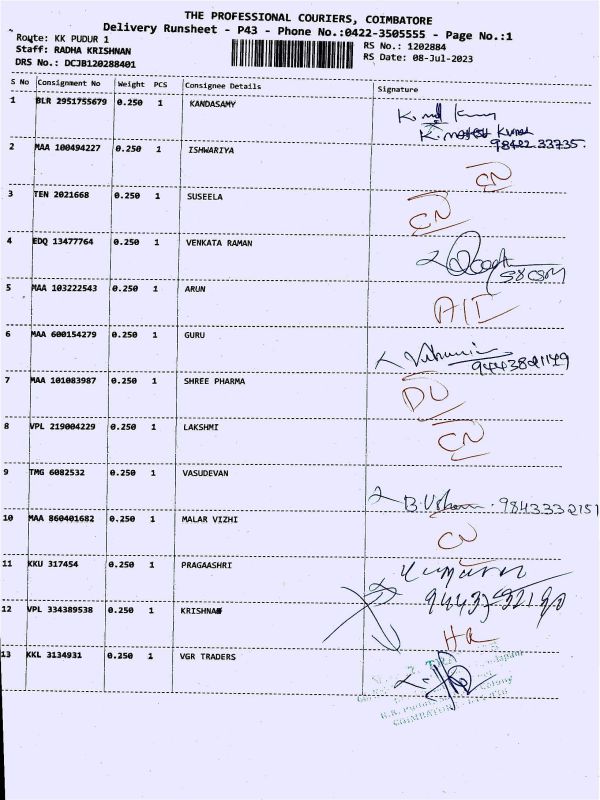 THE PROFESSIONAL COURIERS, COIMBATORE
Delivery Runsheet - P43 - Phone No.:0422-3505555 - Page No.:1
Route: KK PUDUR 1
RS No.: 1202884
Staff: RADHA KRISHNAN
RS Date: 08-Jul-2023
DRS No.: DCJB120288401
S No Consignment No Weight PCS Consignee Details Signature
1 BLR 2951755679 0.250 1 KANDASAMY
98422 33735.
2 MAA 100494227 0.250 1 ISHWARIYA CN
3 TEN 2021668 0.250 1 SUSEELA CN
4 EDQ 13477764 0.250 1 VENKATA RAMAN
5 MAA 103222543 0.250 1 ARUN
6 MAA 600154279 0.250 1 GURU
9443821149
7 MAA 101083987 0.250 1 SHREE PHARMA DU
8 VPL 219004229 0.250 1 LAKSHMI CN
9 TMG 6082532 0.250 1 VASUDEVAN
9843332151
10 MAA 860401682 0.250 1 MALAR VIZHI CN
11 KKU 317454 0.250 1 PRAGAASHRI
12 VPL 334389538 0.250 1 KRISHNA
13 KKL 3134931 0.250 1 VGR TRADERS